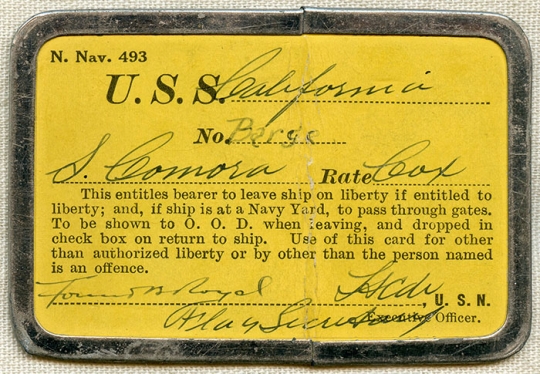 N. Nav. 493
U. S. S. California
No. Barge
S. Comora Rate Cox
This entitles bearer to leave ship on liberty if entitled to
liberty; and, if ship is at a Navy Yard, to pass through gates.
To be shown to O. O. D. when leaving, and dropped in
check box on return to ship. Use of this card for other
than authorized liberty or by other than the person named
is an offence.
, U. S. N.
Flag Secretary Executive Officer.